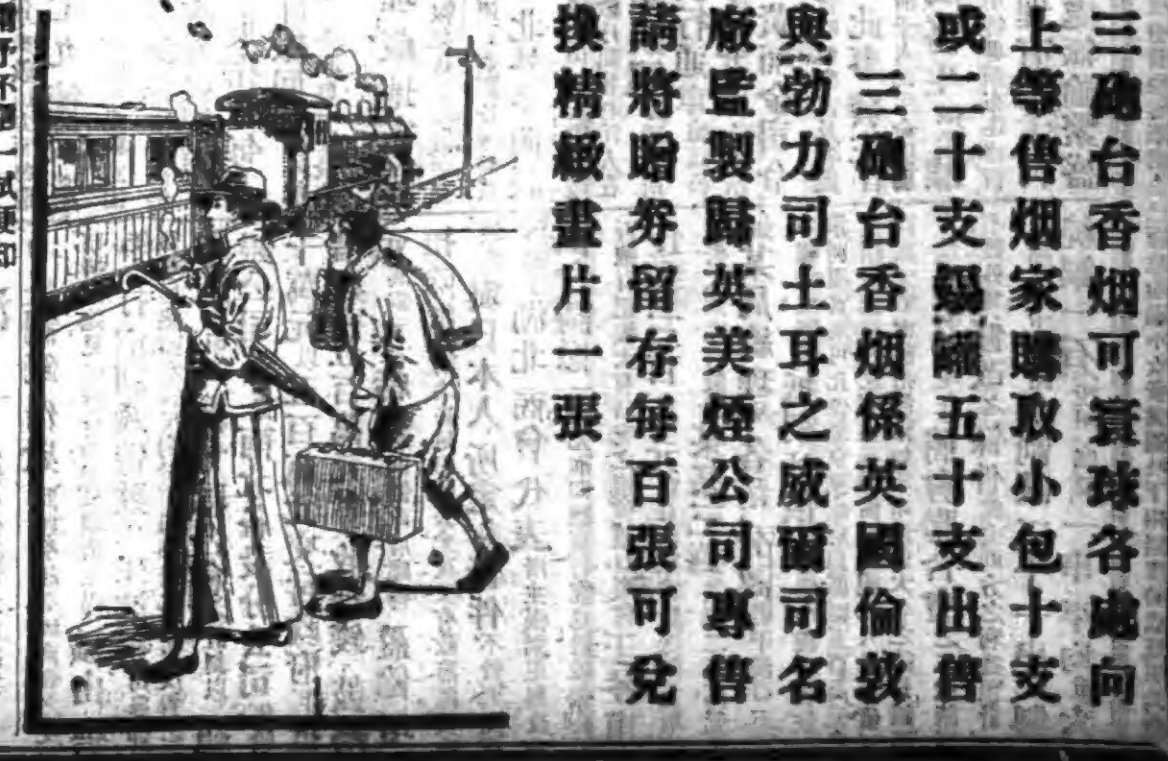 三砲台香烟可寰球各處向
上等售烟家購取小包十支
或二十支錫罐五十支出售
三砲台香烟係英國倫敦
與勃力司土耳之威爾司名
廠監製歸英美煙公司專售
請將贈券留存每百張可兌
換精緻畫片一張
試便印